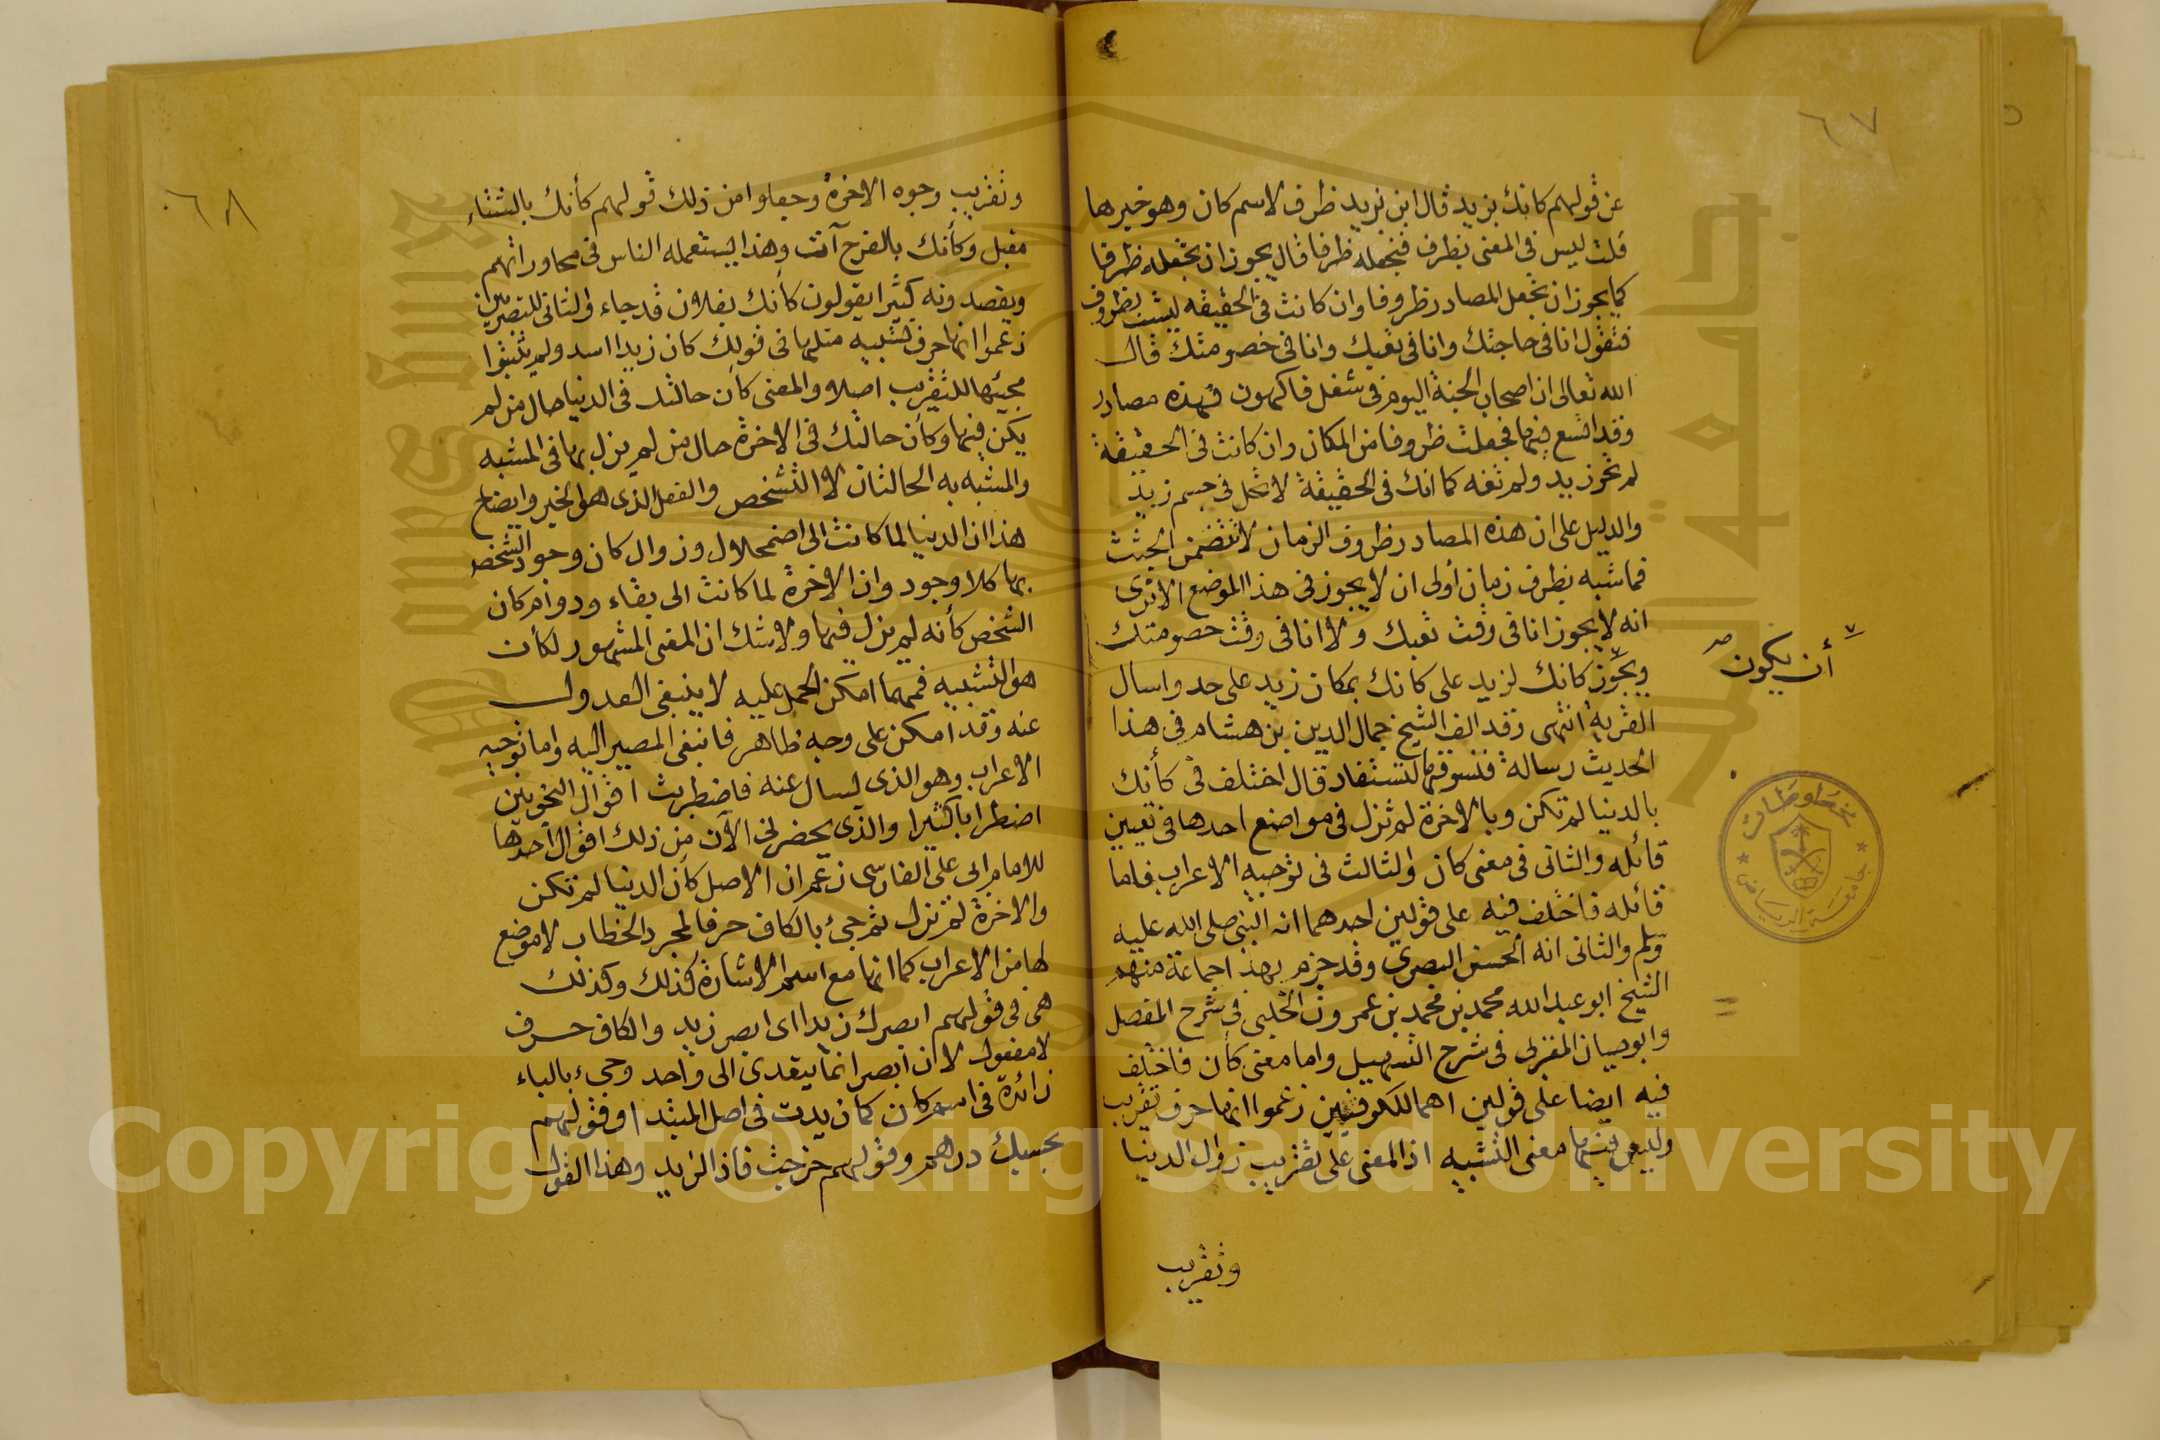 ٦٧
عن قولهم كانك بزيد قال ابن يزيد ظرف لاسم كان وهو خبرها
قلت ليس في المعنى بظرف فنجعله ظرفا قال يجوز ان تجعله ظرفا
كما يجوز ان تجعل المصادر ظروفا وان كانت في الحقيقه ليست بظروف
فتقول انا في حاجتك وانا في تعبك وانا في خصومتك قال
الله تعالى ان اصحاب الجنة اليوم في شغل فاكهون فهذه مصادر
وقد اتسع فيها فجعلت ظروفا من المكان وان كانت في الحقيقة
لم تحو زيد ولم تعه كما انك في الحقيقة لا تحل في جسم زيد
والدليل على ان هذه المصادر ظروف الزمان لا تتضمن الجثث
فما شبه بظرف زمان أولى ان لا يجوز في هذا الموضع الا ترى
انه لا يجوز انا في وقت تعبك ولا انا في وقت خصومتك
ويجوز كانك لزيد على كانك بمكان زيد على حد واسال
أن يكون صح
القرية انتهى وقد الف الشيخ جمال الدين بن هشام في هذا
الحديث رسالة فنسوقها لتستفاد قال اختلف في كأنك
بالدنيا لم تكن وبالاخرة لم تزل في مواضع احدها في تعيين
قائله والثاني في معنى كان والثالث في توجيه الاعراب فاما
قائله فاختلف فيه على قولين احدهما انه النبي صلى الله عليه
وسلم والثاني انه الحسن البصري وقد جزم بهذا جماعة منهم
الشيخ ابو عبد الله محمد بن محمد بن عمرون الحلبي في شرح المفصل
وابو حيان المغربي في شرح التسهيل واما معنى كأن فاختلف
فيه ايضا على قولين احدهما للكوفيين زعموا انها حرف تقريب
وليس فيها معنى التشبيه اذ المعنى على تقريب زوال الدنيا
وتقريب
مخطوطات
جامعة الرياض
٦٨
وتقريب وجوه الاخرة وجعلوا من ذلك قولهم كأنك بالشتاء
مقبل وكأنك بالفرج آت وهذا يستعمله الناس في محاوراتهم
ويقصدونه كثيرا يقولون كأنك بفلان قد جاء والثاني للبصريين
زعموا انها حرف تشبيه مثلها في قولك كان زيدا اسد ولم يثبتوا
مجيئها للتقريب اصلا والمعنى كأن حالتك في الدنيا حال من لم
يكن فيها وكأن حالتك في الاخرة حال من لم يزل بها في المشبه
والمشبه به الحالتان لا التشخص والفعل الذي هو الخبر وايضاح
هذا ان الدنيا لما كانت الى اضمحلال وزوال كان وجود الشخص
بها كلا وجود وان الاخرة لما كانت الى بقاء ودوام كان
الشخص كأنه لم يزل فيها ولا شك ان المعنى المشهور لكأن
هو التشبيه فمهما امكن الحمل عليه لا ينبغي العدول
عنه وقد امكن على وجه ظاهر فانبغى المصير اليه واما توجيه
الاعراب وهو الذي يسال عنه فاضطربت اقوال النحويين
اضطرابا كثيرا والذي يحضرني الآن من ذلك اقوال أحدها
للامام ابي علي الفارسي زعم ان الاصل كأن الدنيا لم تكن
والاخرة لم تزل ثم جيء بالكاف حرفا لمجرد الخطاب لا موضع
لها من الاعراب كما انها مع اسم الاشارة كذلك وكذلك
هي في قولهم ابصرك زيدا اى ابصر زيد والكاف حرف
لا مفعول لان ابصر انما يتعدى الى واحد وجيء بالباء
زائدة في اسم كان كما زيدت في اصل المبتدا وقولهم
بحسبك درهم وقولهم خرجت فاذا الزيد وهذا القول
جامعة الملك سعود
King Saud University
Copyright © King Saud University